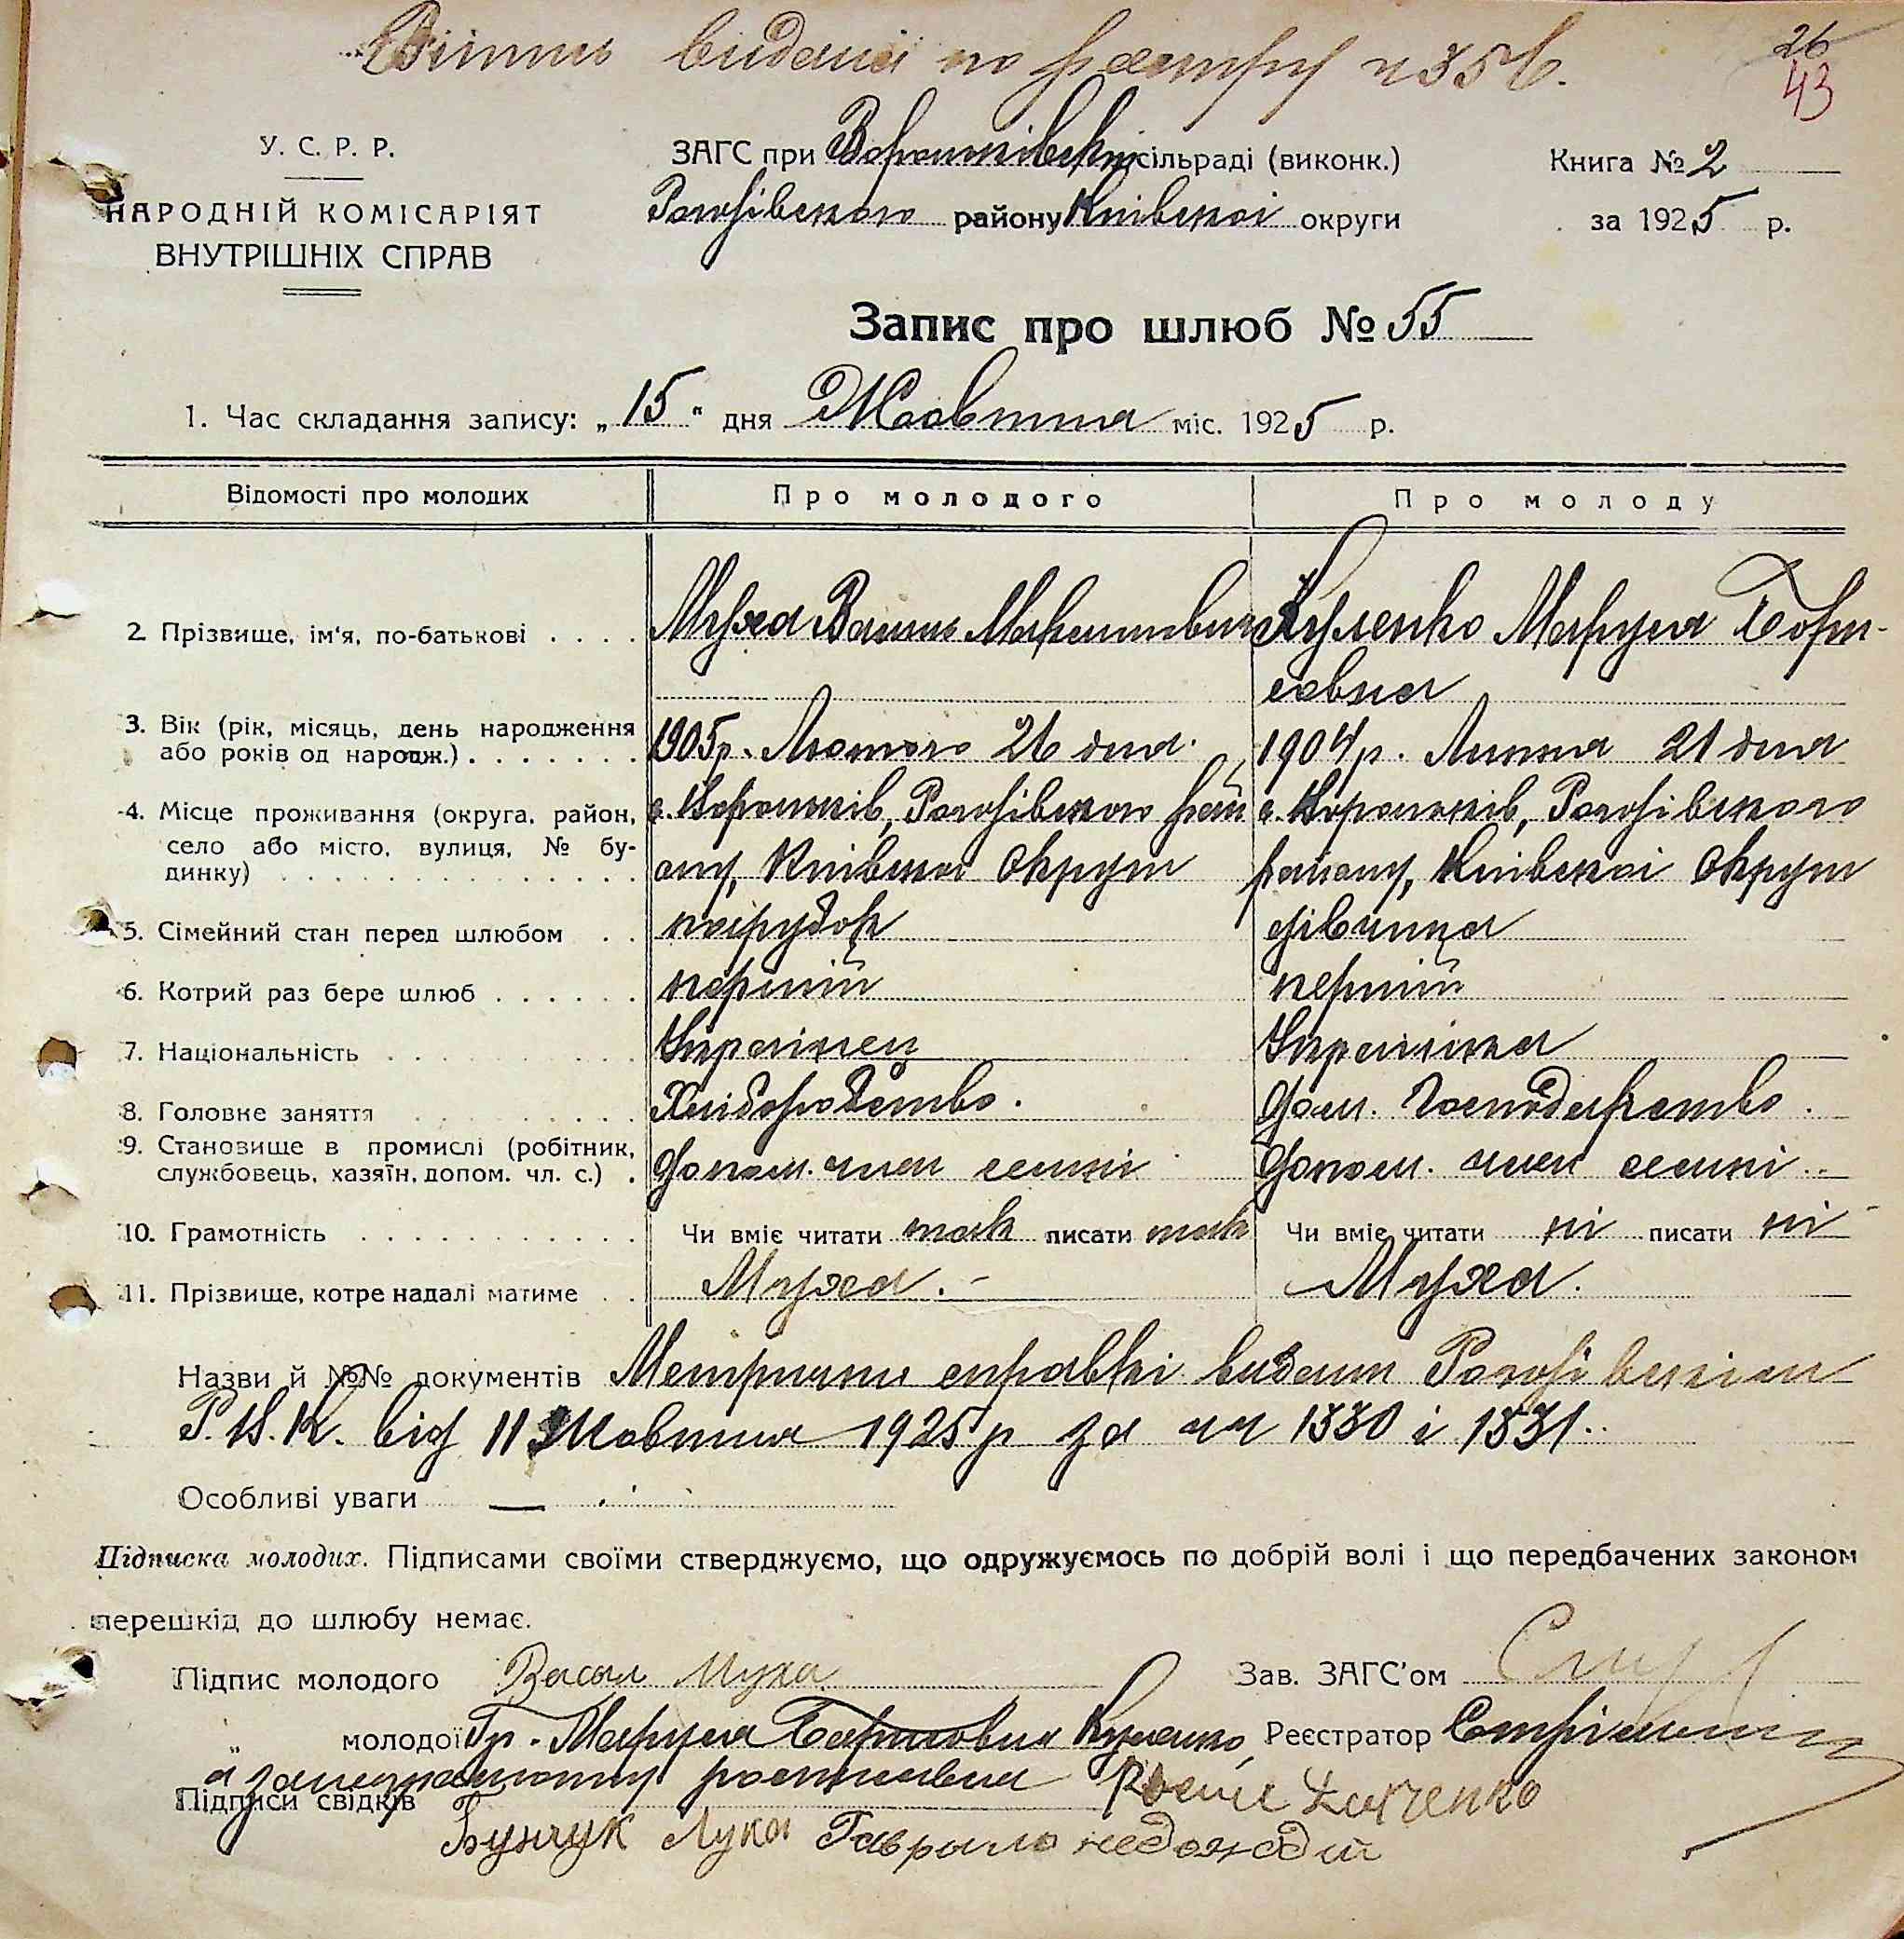 видані по раєстру № 356.
26
43
У. С. Р. Р.
НАРОДНІЙ КОМІСАРІЯТ
ВНУТРІШНІХ СПРАВ
ЗАГС при Вороньківській сільраді (виконк.)
Рогозівського району Київської округи
Книга № 2
за 1925 р.
Запис про шлюб № 55
1. Час складання запису: „15“ дня Жовтня міс. 1925 р.
Відомості про молодих
Про молодого
Про молоду
2. Прізвище, ім'я, по-батькові
Муха Василь
Куленко Маруся Бори-
совна
3. Вік (рік, місяць, день народження
або років од народж.)
1905р. Лютого 26 дня.
1904р. Липня 21 дня
4. Місце проживання (округа, район,
село або місто, вулиця, № бу-
динку)
с. Вороньків, Рогозівського рай
ону, Київської округи
с. Вороньків, Рогозівського
району, Київської округи
5. Сімейний стан перед шлюбом
парубок
дівчина
6. Котрий раз бере шлюб
перший
перший
7. Національність
Українец
Українка
8. Головне заняття
Хліборобство.
Дом. Господарство.
9. Становище в промислі (робітник,
службовець, хазяїн, допом. чл. с.)
Допом. член семні
Допом. член семні
10. Грамотність
Чи вміє читати так писати так
Чи вміє читати ні писати ні
11. Прізвище, котре надалі матиме
Муха.
Муха.
Назви й №№ документів Метричні справкі видани Рогозівским
Р.В.К. від 11 Жовтня 1925 р за №№ 1330 і 1331.
Особливі уваги —
Підписка молодих. Підписами своїми стверджуємо, що одружуємось по добрій волі і що передбачених законом
перешкід до шлюбу немає.
Підпис молодого Васыл Муха
Зав. ЗАГС'ом
„ молодої Гр. Маруся Борисовна Куленко,
Реєстратор
а за неграмотну росписався
Підписи свідків
Бунчук Лука Гаврыло недоходій